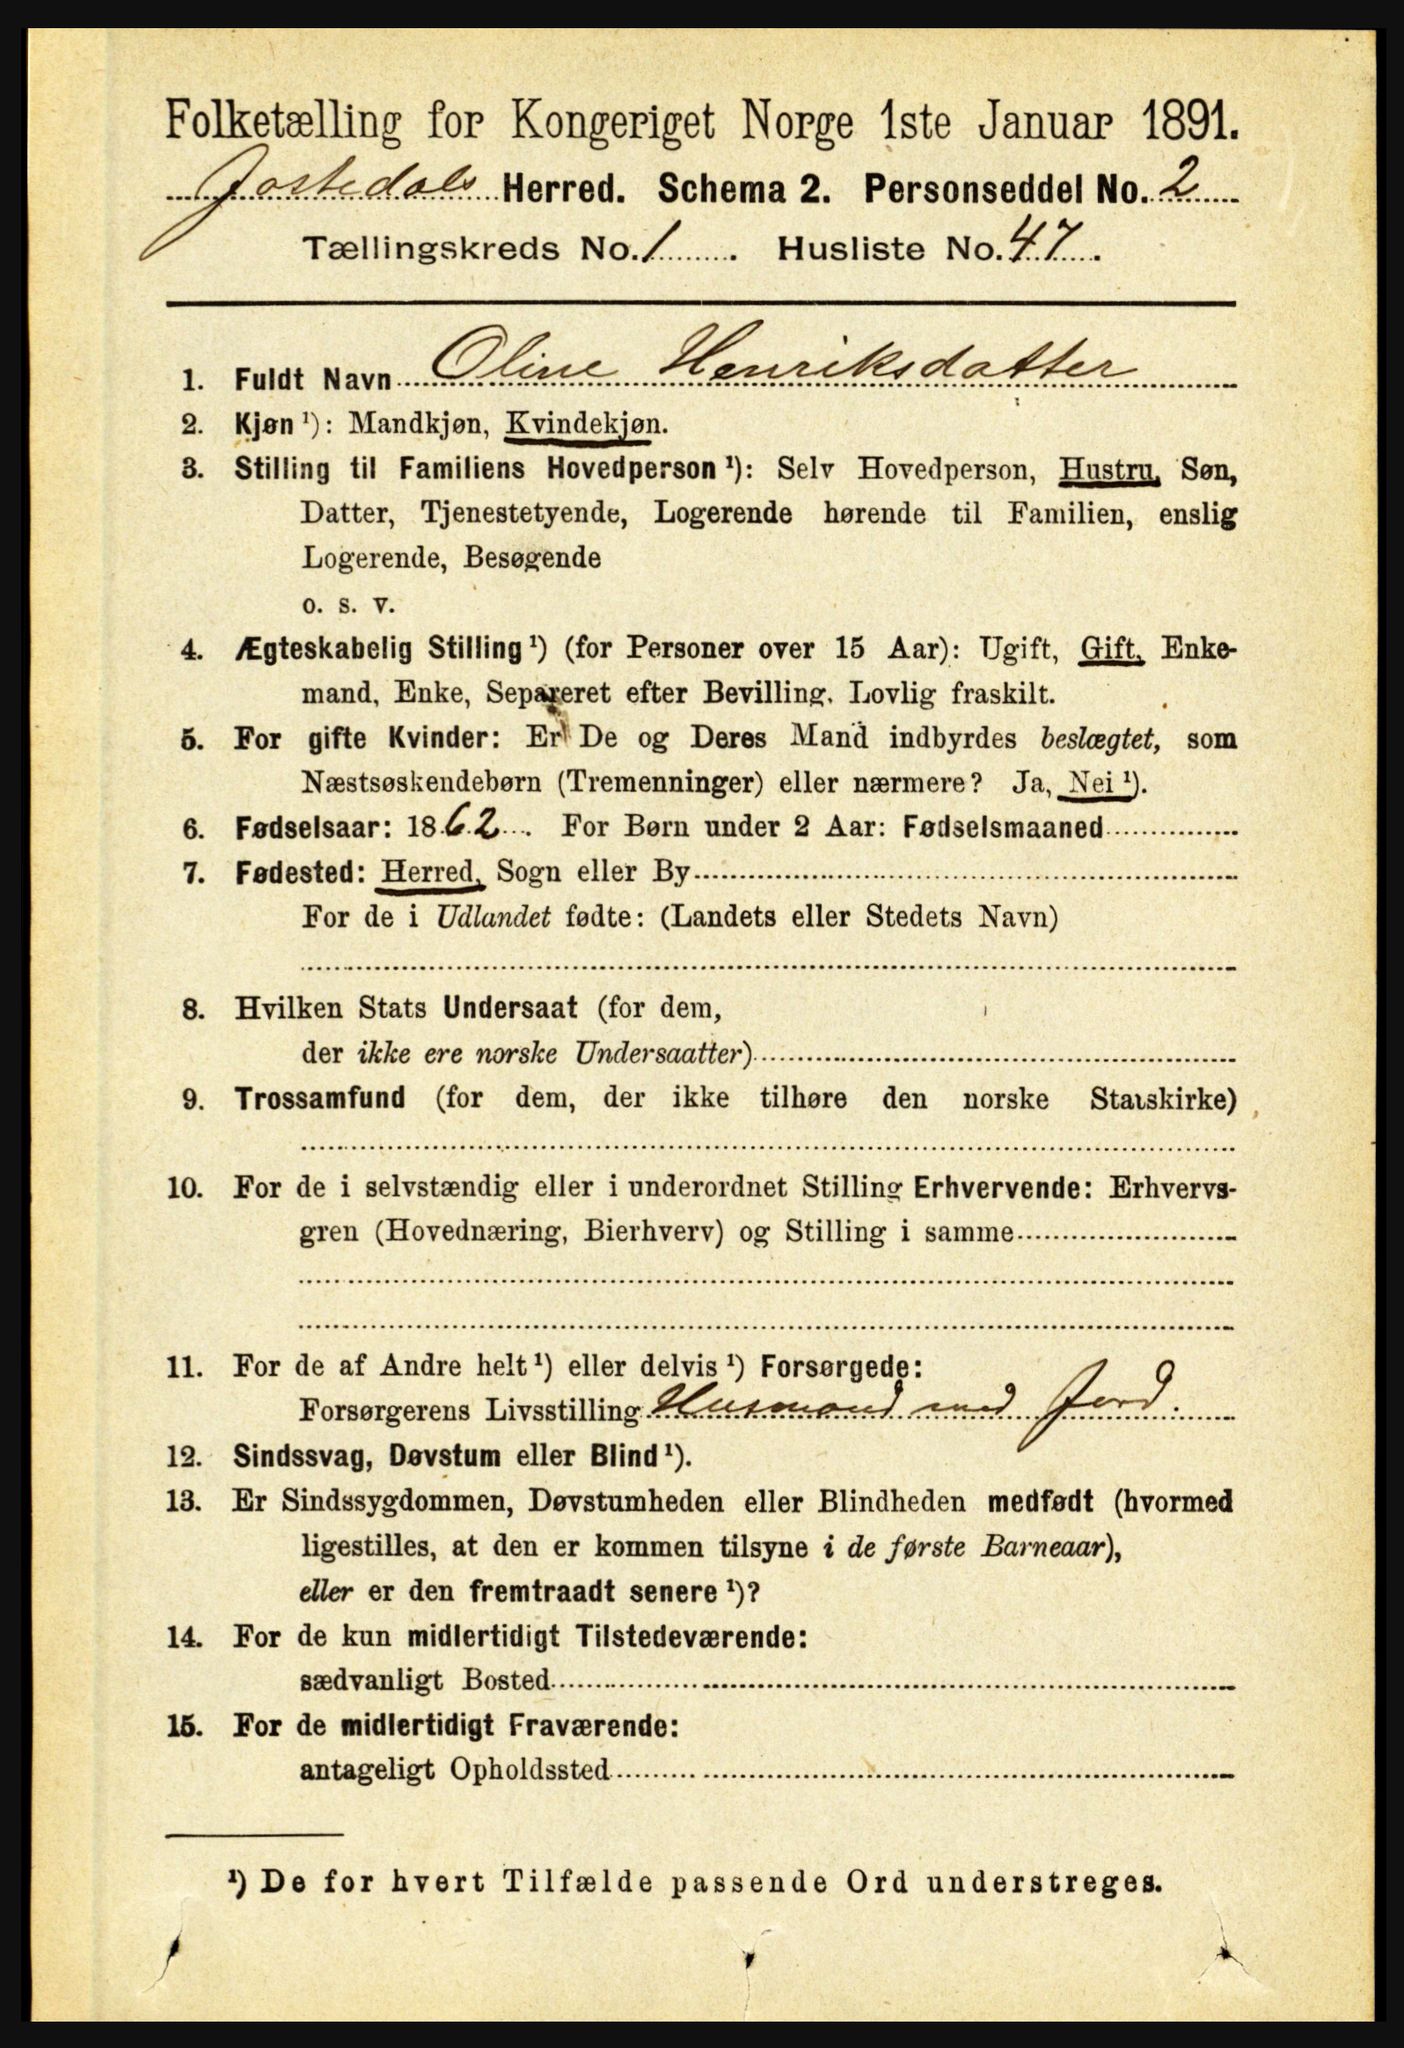 Folketælling for Kongeriget Norge 1ste Januar 1891.
Jostedals Herred. Schema 2. Personseddel No. 2
Tællingskreds No. 1. Husliste No. 47.
1. Fuldt Navn Oline Henriksdatter
2. Kjøn ¹): Mandkjøn, Kvindekjøn.
3. Stilling til Familiens Hovedperson ¹): Selv Hovedperson, Hustru, Søn,
Datter, Tjenestetyende, Logerende hørende til Familien, enslig
Logerende, Besøgende
o. s. v.
4. Ægteskabelig Stilling ¹) (for Personer over 15 Aar): Ugift, Gift, Enke-
mand, Enke, Separeret efter Bevilling. Lovlig fraskilt.
5. For gifte Kvinder: Er De og Deres Mand indbyrdes beslægtet, som
Næstsøskendebørn (Tremenninger) eller nærmere? Ja, Nei ¹).
6. Fødselsaar: 1862. For Børn under 2 Aar: Fødselsmaaned
7. Fødested: Herred, Sogn eller By
For de i Udlandet fødte: (Landets eller Stedets Navn)
8. Hvilken Stats Undersaat (for dem,
der ikke ere norske Undersaatter)
9. Trossamfund (for dem, der ikke tilhøre den norske Statskirke)
10. For de i selvstændig eller i underordnet Stilling Erhvervende: Erhvervs-
gren (Hovednæring, Bierhverv) og Stilling i samme
11. For de af Andre helt ¹) eller delvis ¹) Forsørgede:
Forsørgerens Livsstilling Husmand med Jord.
12. Sindssvag, Døvstum eller Blind ¹).
13. Er Sindssygdommen, Døvstumheden eller Blindheden medfødt (hvormed
ligestilles, at den er kommen tilsyne i de første Barneaar),
eller er den fremtraadt senere ¹)?
14. For de kun midlertidigt Tilstedeværende:
sædvanligt Bosted
15. For de midlertidigt Fraværende:
antageligt Opholdssted
¹) De for hvert Tilfælde passende Ord understreges.